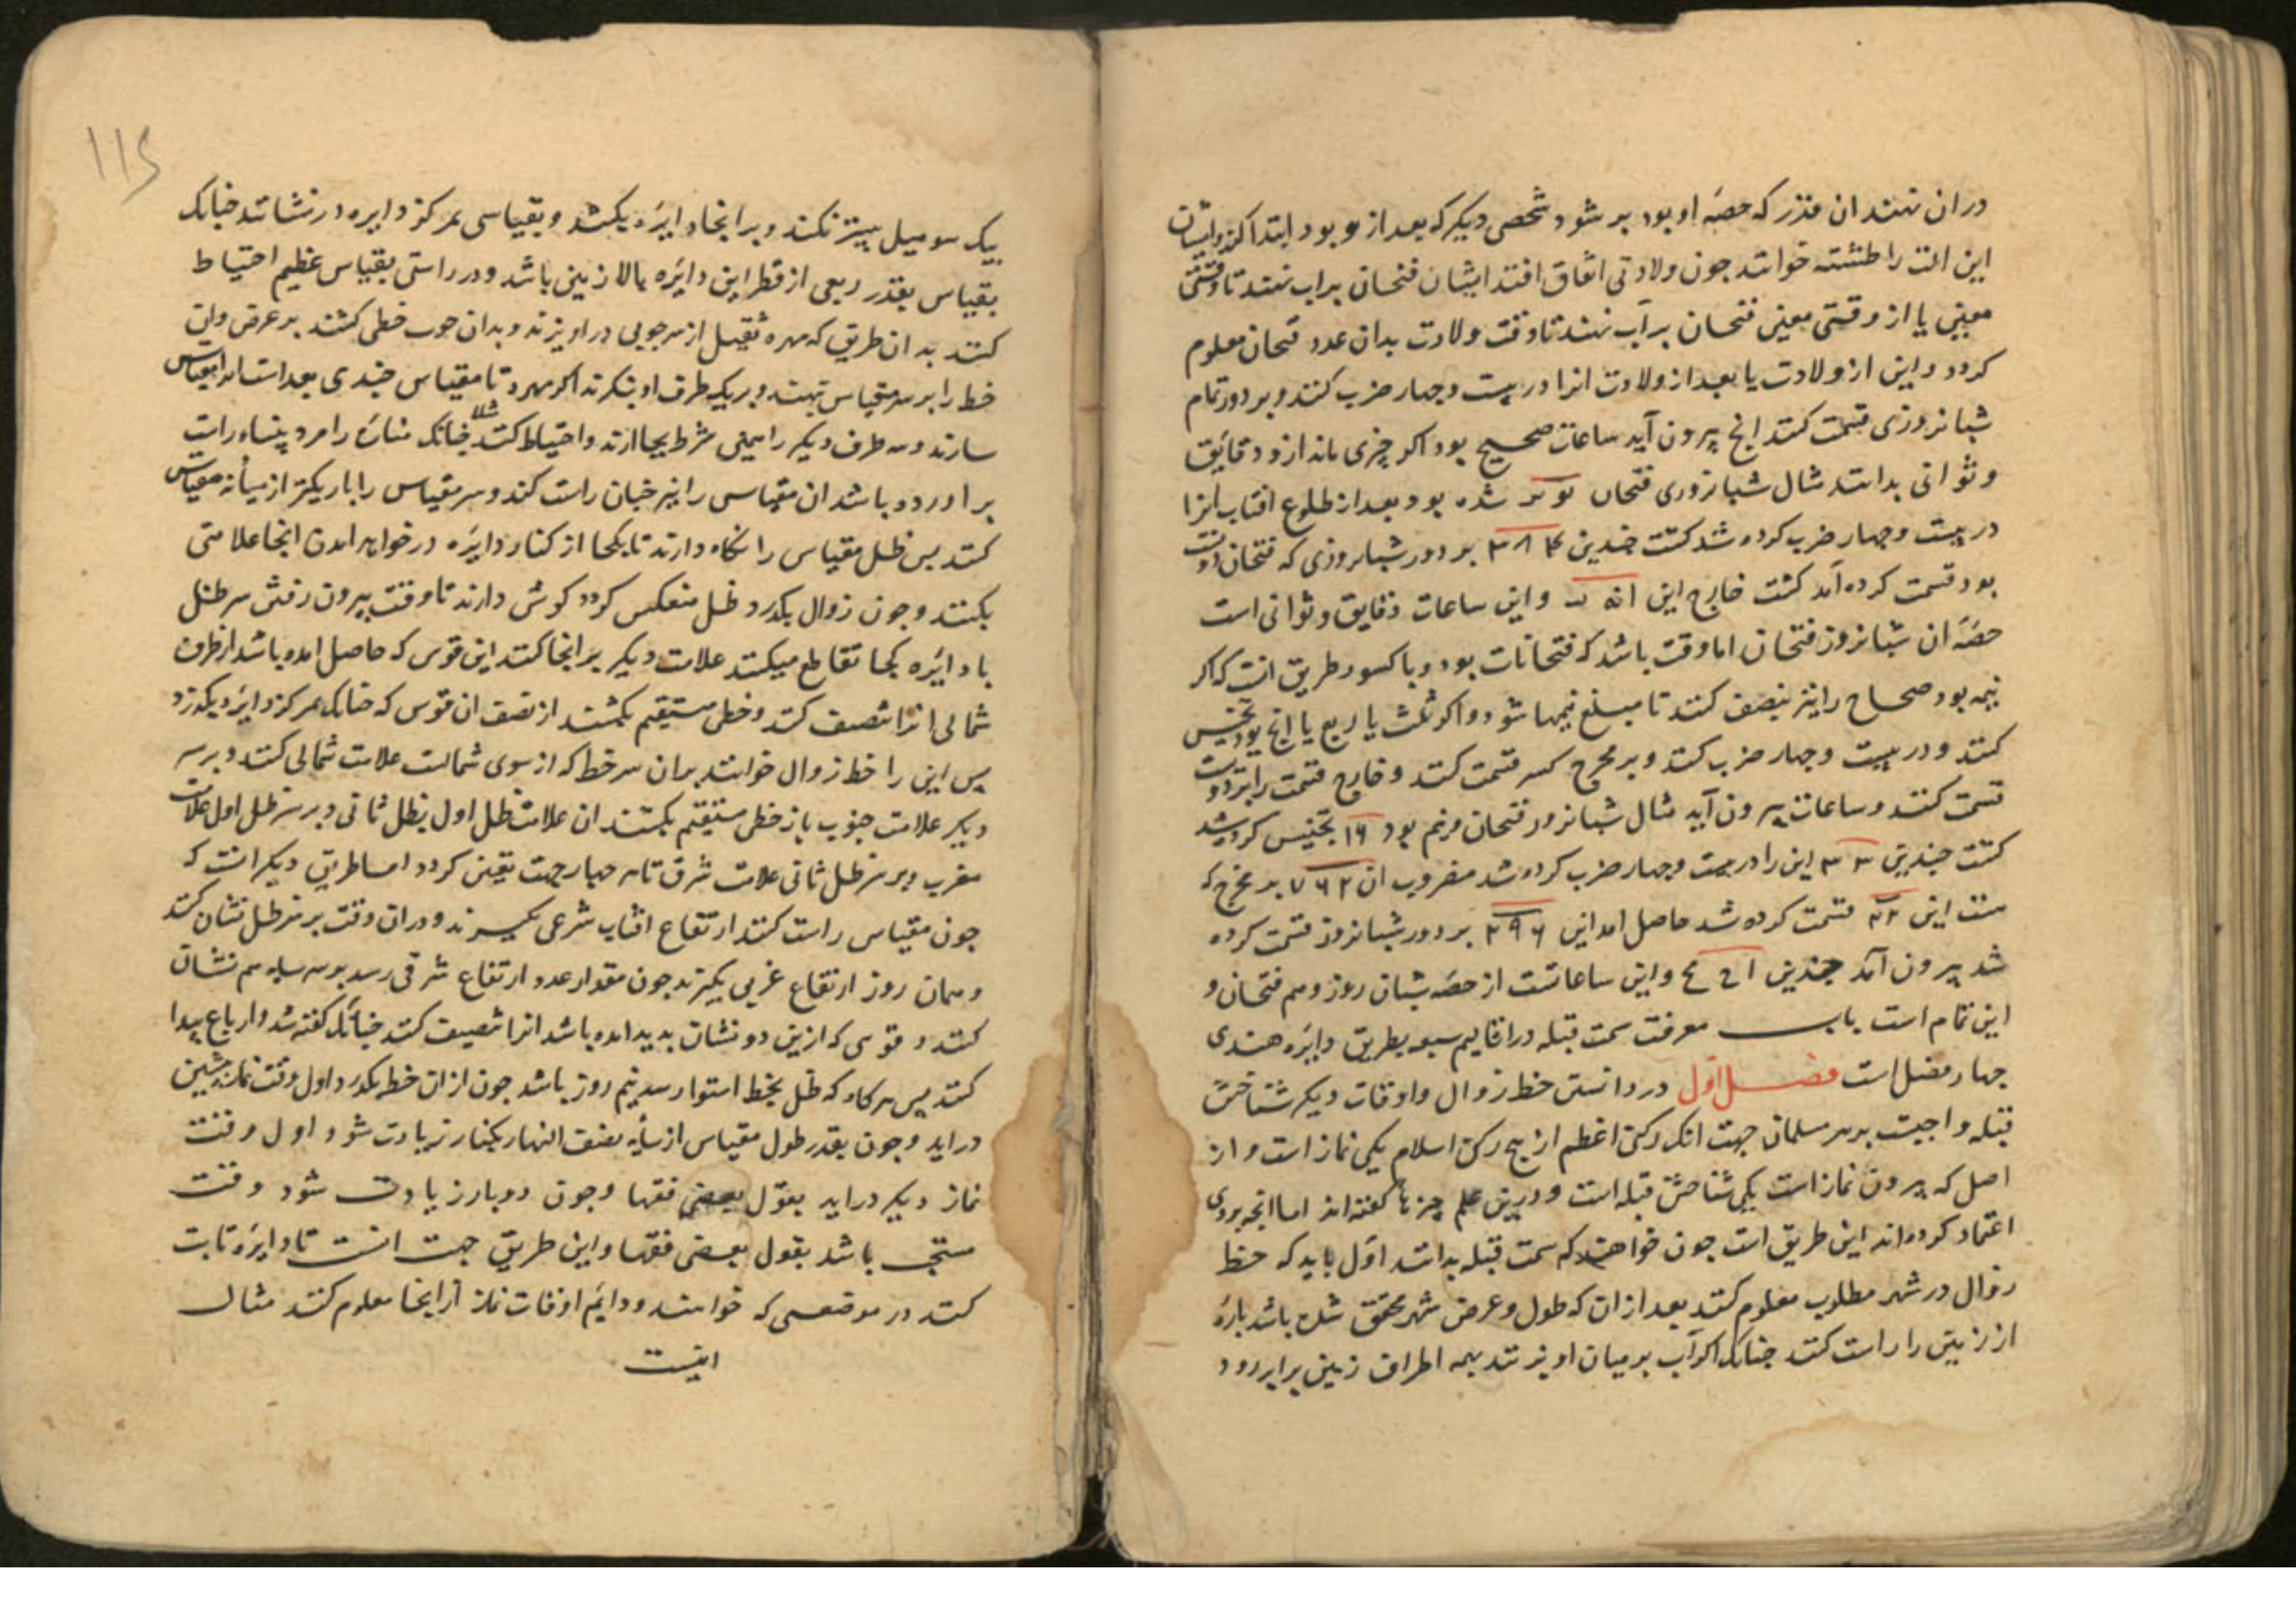 در ان نهند ان قدر که حصهٔ او بود پر شود شخصی دیکر که بعد از و بود ابتدا کند و ایشان
این الت را طشته خوانند جون ولادتی اتفاق افتد ایشان فنحان بر اب نهند تا وقتی
معین یا از وقتی معین فنحان بر آب نهند تا وقت ولادت بدان عدد فنحان معلوم
کردد و این از ولادت یا بعد از ولادت انرا در بیست وجهار ضرب کنند و بر دور تمام
شبانروزی قسمت کنند انج بیرون آید ساعات صحیح بود اکر چیزی ماند از و دقایق
وثوانی بدانند مثال شبانروزی فنحان شده بود بعد از طلوع افتاب انرا
در بیست وجهار ضرب کرده شد کشت جندین بر دور شبانروزی که فنحان
بود قسمت کرده آمد کشت خارج این و این ساعات دقایق وثوانی است
حصهٔ ان شبانروز فنحان اما وقت باشد که فنحانات بود و با کسور طریق انست که اکر
نیمه بود صحاح را نیز بنصف کنند تا مبلغ نیمها شود و اکر ثلث یا ربع یا انج بود تجنیس
کنند و در بیست وجهار ضرب کنند و بر مخرج کسر قسمت کنند و خارج قسمت را بر
قسمت کنند و ساعات بیرون آید مثال شبانروز فنحان و نیم بود ۱۶ تجنیس کرده شد
کشت جندین ۳۳ این را در بیست وجهار ضرب کرده شد مضروب ان ۷۹۲ بر مخرج که
این قسمت کرده شد حاصل امد این ۳۹۶ بر دور شبانروز قسمت کرده
شد بیرون آمد جندین و این ساعاتست از حصهٔ شبان روز و هم فنحان و
این تمام است باب معرفت سمت قبله در اقالیم سبعه بطریق دایره هندی
جهار فصل است فصل اول در دانستن خط زوال و اوقات دیکر شناختن
قبله واجبست بر هر مسلمان جهت انک رکن اعظم از پنج رکن اسلام یکی نماز است و از
اصل که بیرون نماز است یکی شناختن قبله است و درین علم چیزها کفته اند اما انچه بروی
اعتماد کرده اند این طریق است جون خواهند که سمت قبله بدانند اول باید که خط
زوال در شهر مطلوب معلوم کنند بعد از ان که طول و عرض شهر محقق شده باشد بارهٔ
از زمین را راست کنند جنانک اکر آب بر میان او نهند بهمه اطراف زمین برابر رود
۱۱۵
بیک سو میل بیشتر نکند و بر انجا دایره بکشند و مقیاسی بمرکز دایره در نشانند جنانک
مقیاس بقدر ربعی از قطر این دایره بالا زمین باشد و در راستی مقیاس عظیم احتیاط
کنند بدان طریق که مهره ثقیل از سر جوبی در اویزند و بدان جوب خطی کشند بر عرض وان
خط را بر سر مقیاس نهند و بر یک طرف او بنکرند اکر مهره تا مقیاس جندی بعد است
سازند و سه طرف دیکر را همین شرط بجا ارند و احتیاط کنند مثلا جنانک مناره را مرد بنا راست
بر اورده باشد ان مقیاس را نیز جنان راست کند و سر مقیاس را باریکتر از میانه مقیاس
کنند بس ظل مقیاس را نکاه دارند تا بکجا از کنار دایره در خواهد امدن انجا علامتی
بکنند وجون زوال بکذرد و ظل منعکس کردد کوش دارند تا وقت بیرون رفتن سر ظل
با دایره کجا تقاطع میکند علامت دیکر بر انجا کنند این قوس که حاصل امده باشد از طرف
شمالی انرا تنصیف کنند و خطی مستقیم بکشند از نصف ان قوس که جنانک بمرکز دایره بکذرد
پس این را خط زوال خوانند بران سر خط که از سوی شمالست علامت شمالی کنند و بر سر
دیکر علامت جنوب باز خطی مستقیم بکشند ان علامت ظل اول بظل ثانی و بر سر ظل اول علامت
مغرب و بر سر ظل ثانی علامت شرق تا هر جهار جهت یقین کردد اما طریق دیکر انست که
جون مقیاس راست کنند ارتفاع افتاب شرعی بکیرند و دران وقت بر سر ظل نشان کنند
و همان روز ارتفاع غربی بکیرند جون مقدار عدد ارتفاع شرقی رسد بر سر سایه هم نشان
کنند و قوسی که ازین دو نشان بدید امده باشد انرا تنصیف کنند جنانک کفته شد و ارباع پیدا
کنند پس هرکاه که ظل بخط استوا رسد نیم روز باشد جون از ان خط بکذرد اول وقت نماز پیشین
دراید وجون بقدر طول مقیاس از سایه نصف النهار یکبار زیادت شود اول وقت
نماز دیکر دراید بقول بعضی فقها وجون دوبار زیادت شود وقت
مستحب باشد بقول بعضی فقها و این طریق جهت انست تا دایره ثابت
کنند در موضعی که خواهند و دایم اوقات نماز از انجا معلوم کنند مثال
اینست